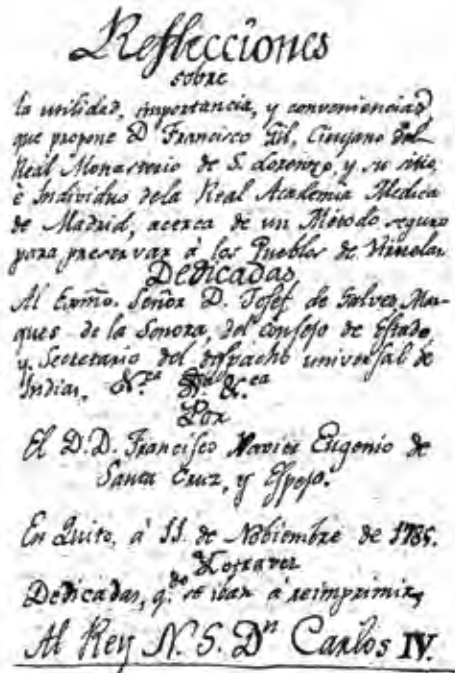 Reflecciones
sobre
la utilidad, importancia, y conveniencias,
que propone D. Francisco Gil, Cirujano del
Real Monasterio de S. Lorenzo, y su sitio,
è Individuo dela Real Academia Medica
de Madrid, acerca de un Método seguro
para preservar à los Pueblos de Viruelas
Dedicadas
Al Exmõ. Señor D. Josef de Galvez, Mar-
ques de la Sonora, del Consejo de Estado,
y Secretario del despacho universal de
Indias, &.ca &.ca
Por
El D.D. Francisco Xavier Eugenio de
Santa Cruz, y Espejo.
En Quito, à 11. de Nobiembre de 1785.
Dedicadas, q.do se iban à reimprimir,
Al Rey N. S. Dn Carlos IV.